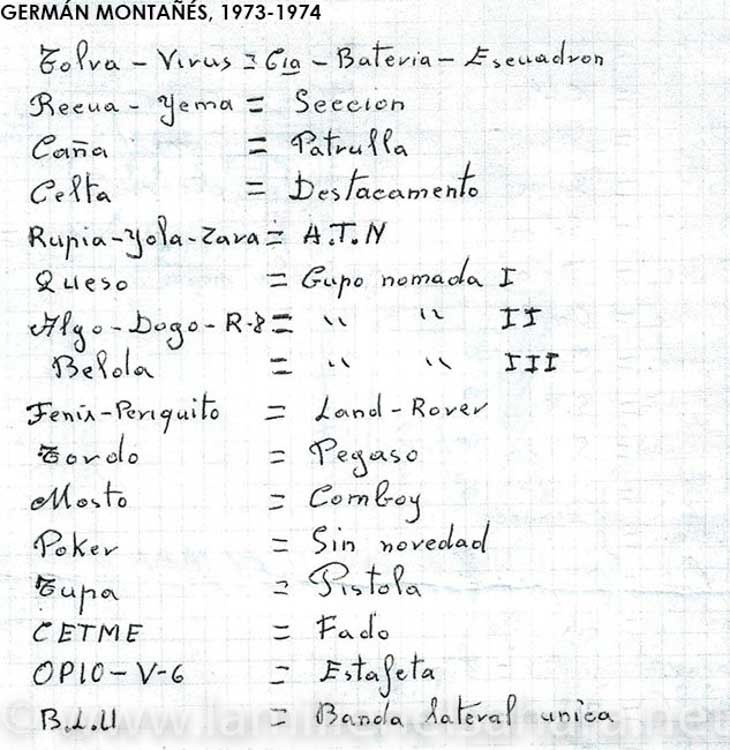 GERMÁN MONTAÑÉS, 1973-1974
Tolva - Virus = Cia - Bateria - Escuadron
Recua - Yema = Seccion
Caña = Patrulla
Celta = Destacamento
Rupia-Yola-Zara = A.T.N
Queso = Gupo nomada I
Algo-Dogo-R-8 = " " II
Belola = " " III
Fenix-Periquito = Land-Rover
Tordo = Pegaso
Mosto = Comboy
Poker = Sin novedad
Tupa = Pistola
CETME = Fado
OPIO-V-6 = Estafeta
B.L.U = Banda lateral unica
© www.lamilienelsahara.net